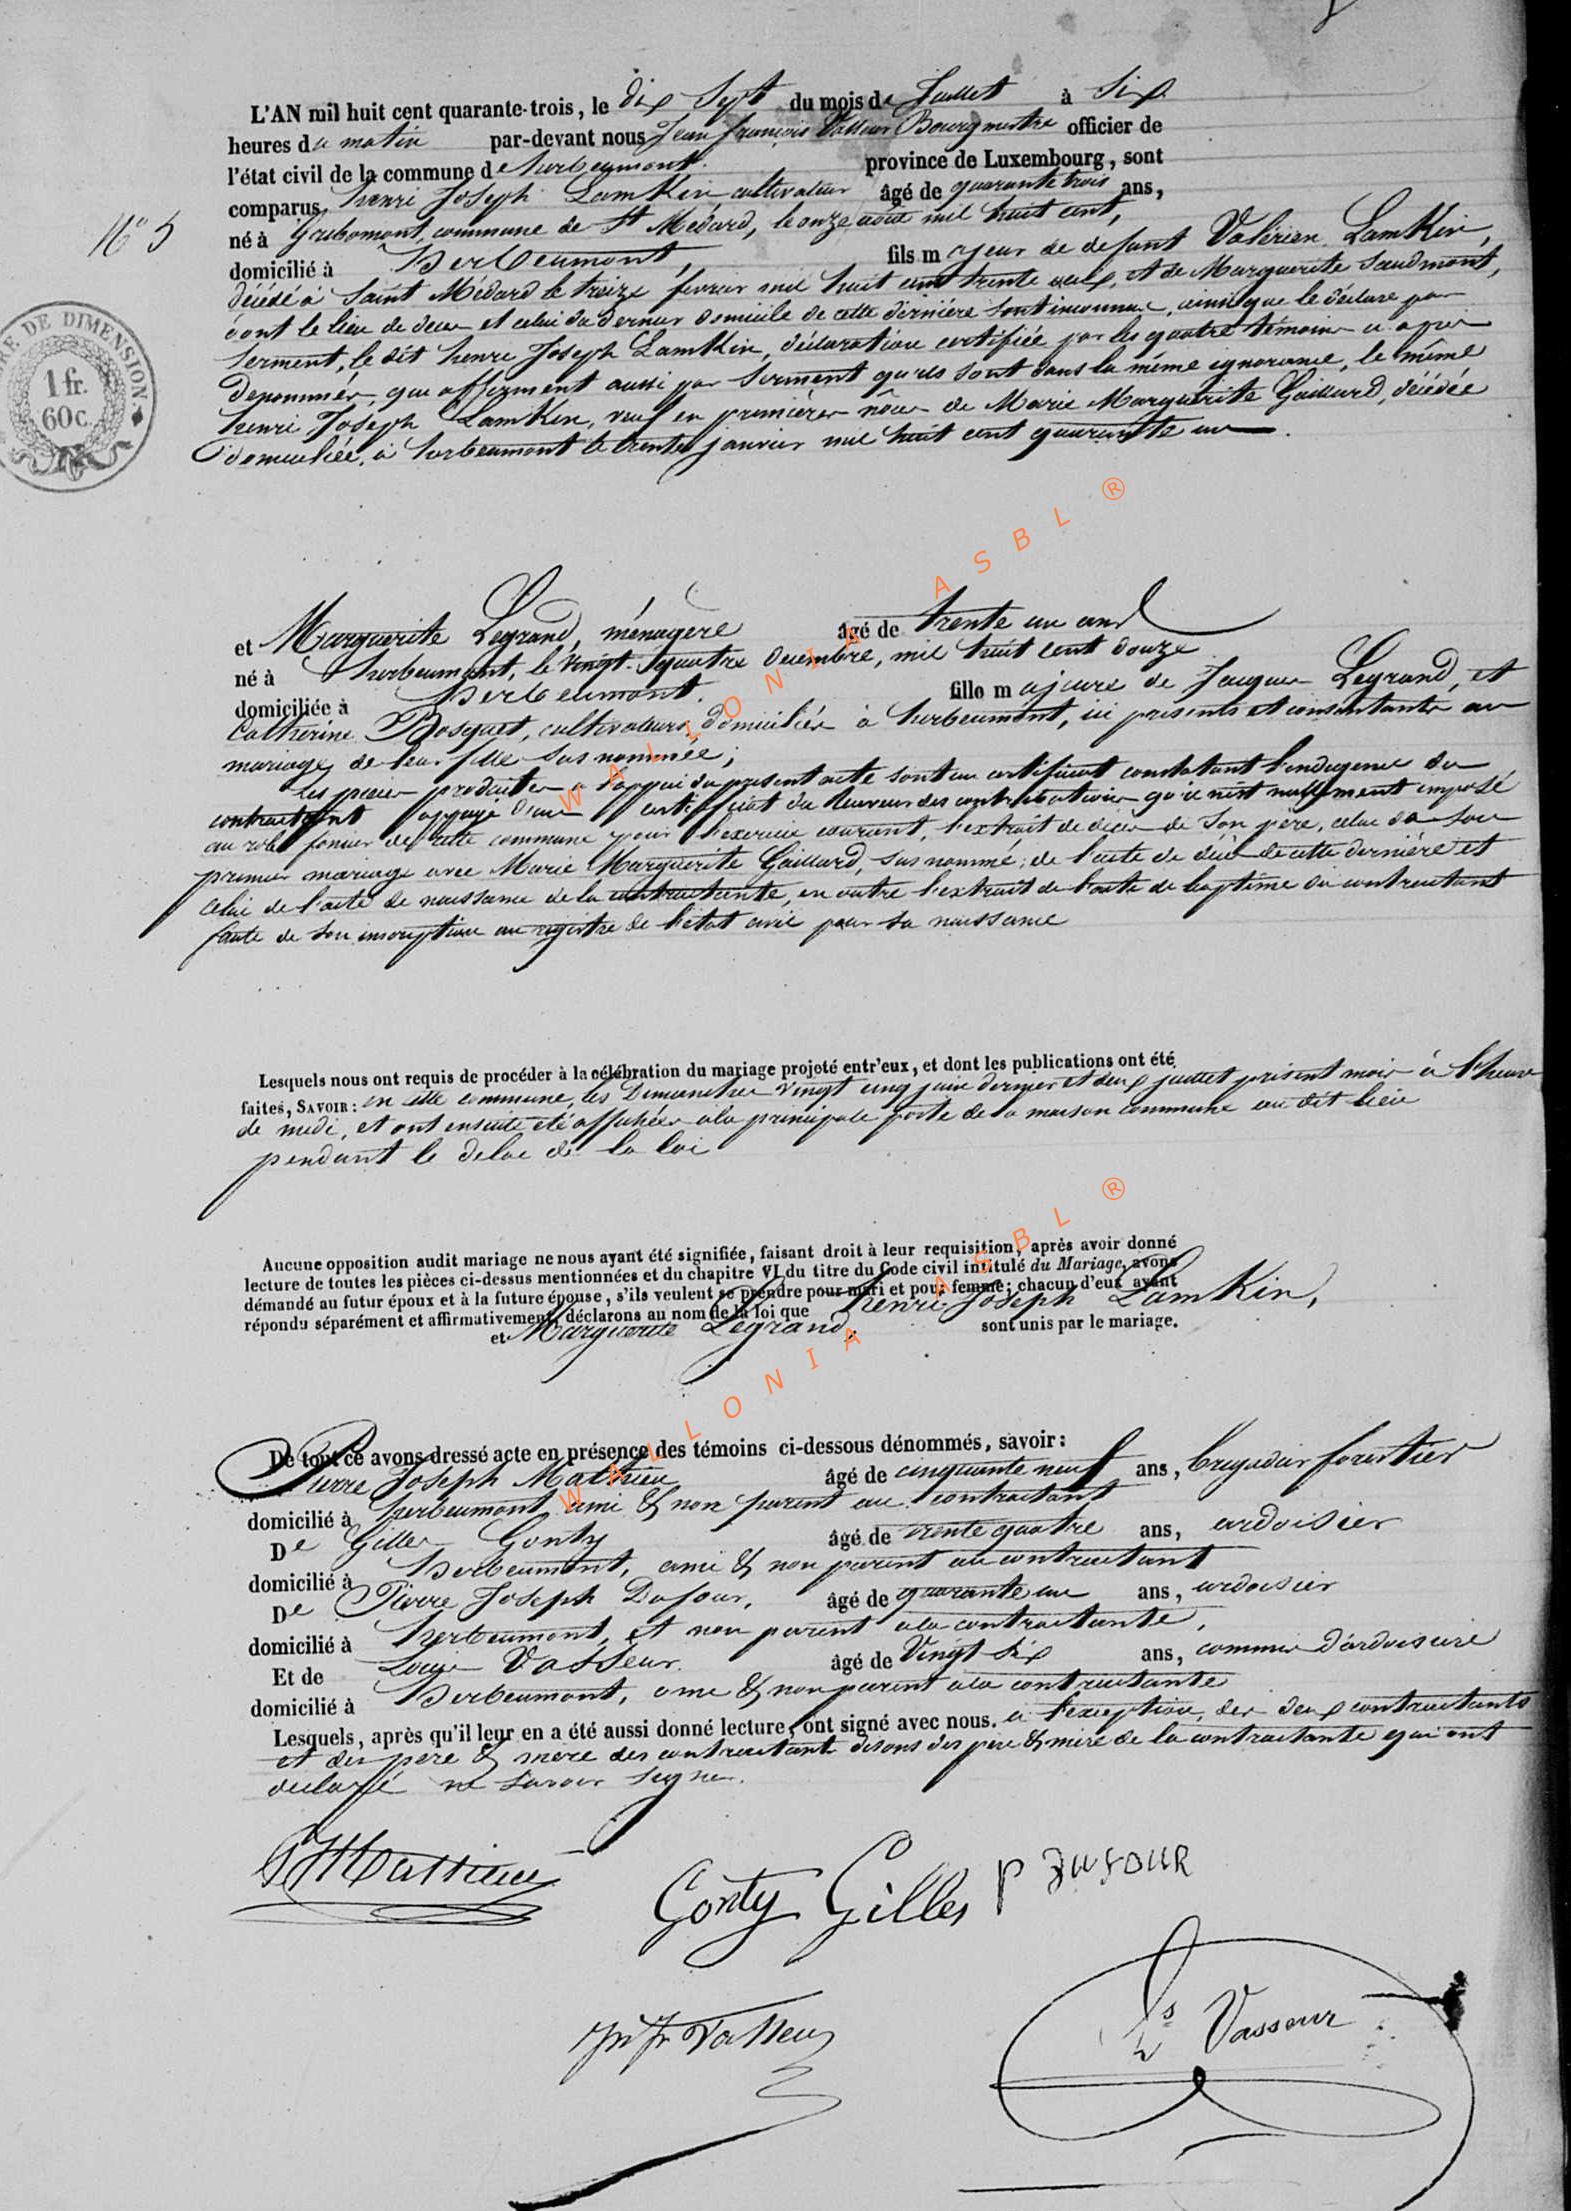 L'AN mil huit cent quarante-trois, le dix Sept du mois de Juillet à Six
heures du matin par-devant nous Jean françois Vasseur Bourgmestre officier de
l'état civil de la commune de herbeumont. province de Luxembourg, sont
comparus henri Joseph LamKin cultivateur âgé de quarante trois ans,
N° 5
né à Gribomont, commune de St Médard, le onze août mil huit cent,
domicilié à Herbeumont, fils majeur de defunt Valérien LamKin,
décédé à Saint Médard le treize fevrier mil huit cent trente et de Marguerite Saudmont,
dont le lieu de deces et celui du dernier domicile de cette dernière sont inconnus, ainsi que le déclare par
Serment, le dit henri Joseph LamKin, déclaration certifiée par les quatre témoins ci apres
denommés, qui affirment aussi par Serment qu'ils sont dans la même ignorance, le même
henri Joseph LamKin, veuf en premières nôces de Marie Marguerite Gaillard, décédée
domiciliée, à herbeumont le trente janvier mil huit cent quarante un
TIMBRE DE DIMENSION.
1 fr.
60 c.
et Marguerite Legrand, ménagère âgé de trente un ans
né à herbeumont, le vingt quatre decembre, mil huit cent douze
domiciliée à Herbeumont. fille majeure de Jacques Legrand, et
Catherine Bosquet, cultivateurs, domiciliés à herbeumont, ici présents et consentants au
mariage de leur fille sus nommée;
Les pieces produites à l'appui du present acte sont un certificat constatant l'indigence du
contractant appuyé d'un certificat du Receveur des contributions qu'il n'est nullement imposé
au rôle foncier de cette commune pour l'exercice courant, l'extrait de décès de Son père, celui de Son
premier mariage avec Marie Marguerite Gaillard, sus nommé; de l'acte de décès de cette dernière et
celui de l'acte de naissance de la contractante, en outre l'extrait de l'acte de baptême du contractant
faute de son inscription au registre de l'état civil pour sa naissance
Lesquels nous ont requis de procéder à la célébration du mariage projeté entr'eux, et dont les publications ont été
faites, SAVOIR: en cette commune, les Dimanches vingt cinq juin dernier et deux juillet présent mois à l'heure
de midi, et ont ensuite été affichées à la principale porte de la maison commune au dit lieu
pendant le delai de la loi
Aucune opposition audit mariage ne nous ayant été signifiée, faisant droit à leur requisition, après avoir donné
lecture de toutes les pièces ci-dessus mentionnées et du chapitre VI du titre du Code civil institulé du Mariage, avons
démandé au futur époux et à la future épouse, s'ils veulent se prendre pour mari et pour femme; chacun d'eux ayant
répondu séparément et affirmativement, déclarons au nom de la loi que henri Joseph LamKin,
et Marguerite Legrand, sont unis par le mariage.
De tout ce avons dressé acte en présence des témoins ci-dessous dénommés, savoir:
Pierre Joseph Mathieu âgé de cinquante neuf ans, brigadier forestier
domicilié à herbeumont ami & non parent au contractant
De Gilles Gonty âgé de trente quatre ans, ardoisier
domicilié à Herbeumont, ami & non parent au contractant
De Pierre Joseph Dufour, âgé de quarante un ans, ardoisier
domicilié à herbeumont, et non parent à la contractante,
Et de Louis Vasseur. âgé de Vingt Six ans, commis d'ardoisière
domicilié à Herbeumont, ami & non parent à la contractante
Lesquels, après qu'il leur en a été aussi donné lecture, ont signé avec nous. à l'exception, des deux contractants
et des pere & mere des contractant disons des pere & mère de la contractante qui ont
déclaré ne savoir signer.
PJ Mathieu
Gonty Gilles
P DUFOUR
Jn Fr Vasseur
Ls Vasseur
WALLONIA ASBL ®
WALLONIA ASBL ®